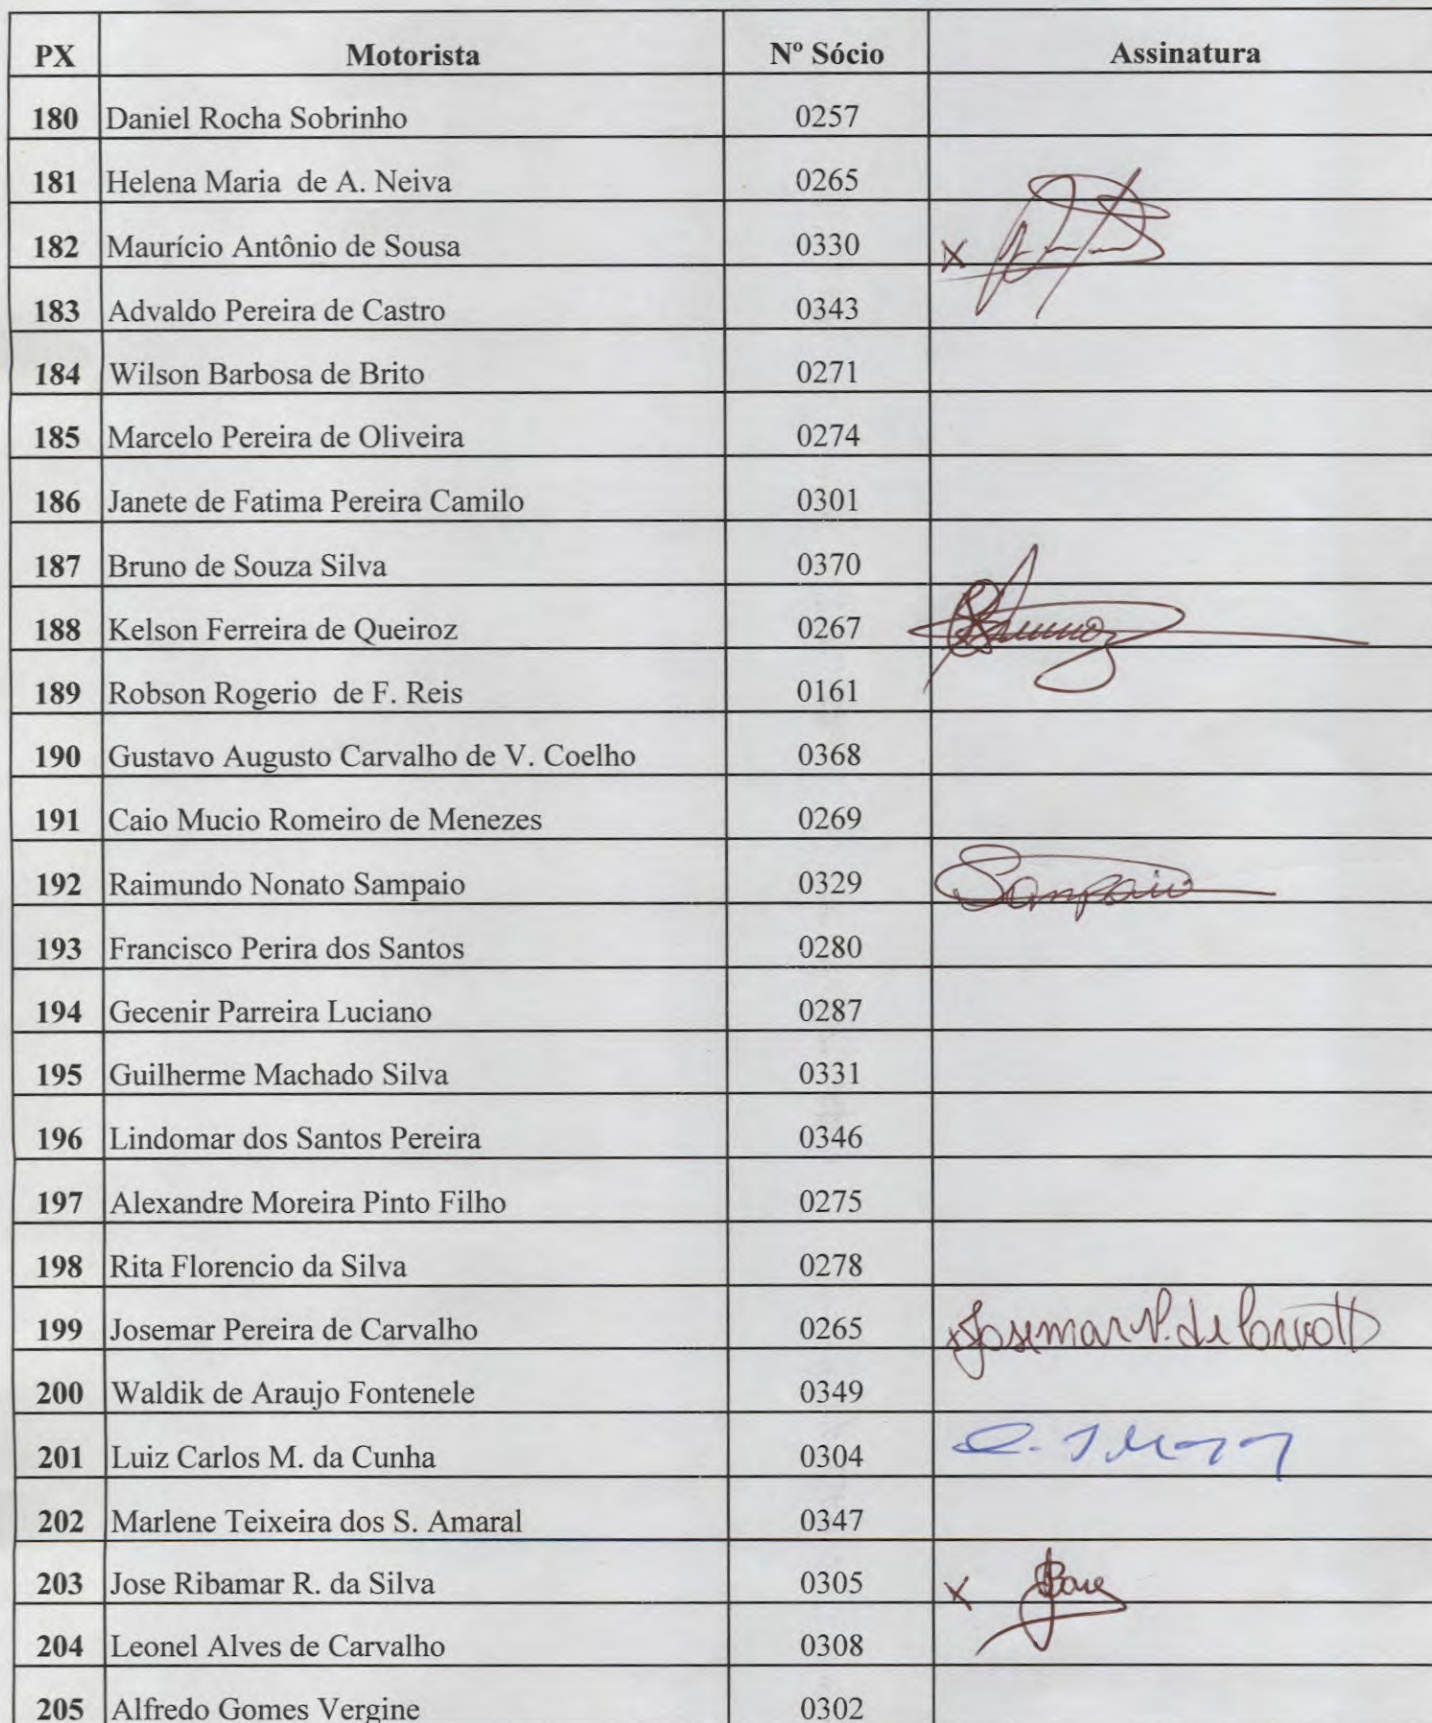 PX Motorista Nº Sócio Assinatura
180 Daniel Rocha Sobrinho 0257
181 Helena Maria de A. Neiva 0265
182 Maurício Antônio de Sousa 0330 X
183 Advaldo Pereira de Castro 0343
184 Wilson Barbosa de Brito 0271
185 Marcelo Pereira de Oliveira 0274
186 Janete de Fatima Pereira Camilo 0301
187 Bruno de Souza Silva 0370
188 Kelson Ferreira de Queiroz 0267
189 Robson Rogerio de F. Reis 0161
190 Gustavo Augusto Carvalho de V. Coelho 0368
191 Caio Mucio Romeiro de Menezes 0269
192 Raimundo Nonato Sampaio 0329 Sampaio
193 Francisco Perira dos Santos 0280
194 Gecenir Parreira Luciano 0287
195 Guilherme Machado Silva 0331
196 Lindomar dos Santos Pereira 0346
197 Alexandre Moreira Pinto Filho 0275
198 Rita Florencio da Silva 0278
199 Josemar Pereira de Carvalho 0265 x Josemar P. de
200 Waldik de Araujo Fontenele 0349
201 Luiz Carlos M. da Cunha 0304
202 Marlene Teixeira dos S. Amaral 0347
203 Jose Ribamar R. da Silva 0305 X
204 Leonel Alves de Carvalho 0308
205 Alfredo Gomes Vergine 0302